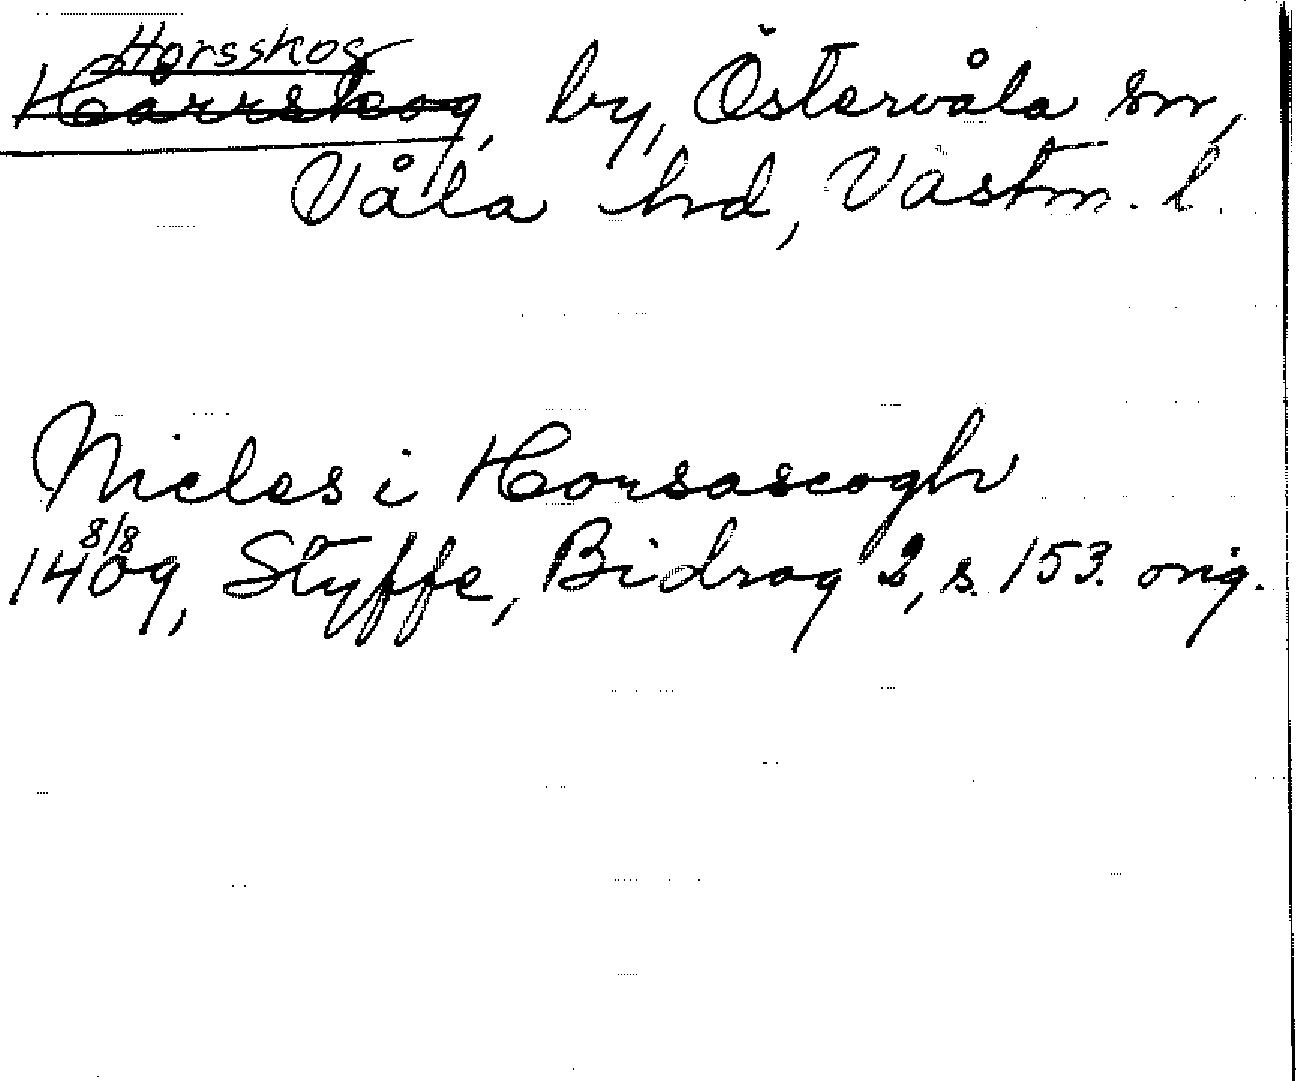 Horsskog
Harrskog, by, Östervåla sn,
Våla hd, Västm. l.
Nicles i Horsascogh
8/8
1409, Styffe, Bidrag 2, s. 153. orig.